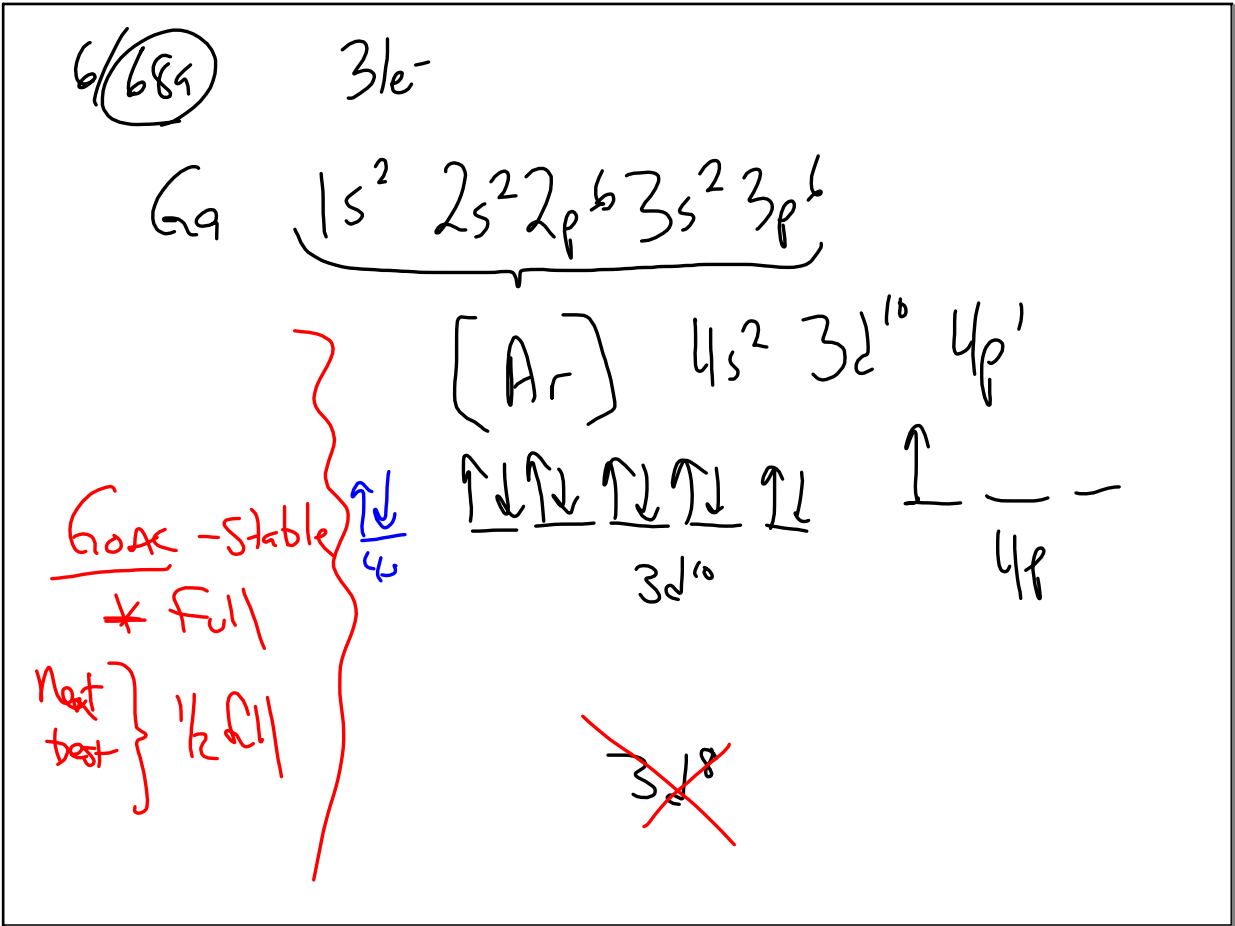 6/68a 31e⁻
Ga 1s² 2s² 2p⁶ 3s² 3p⁶
[Ar] 4s² 3d¹⁰ 4p¹
↑↓ ↑↓ ↑↓ ↑↓ ↑↓ ↑↓ ↑ _ _
4s 3d¹⁰ 4p
GOAL - Stable
* Full
Next best } 1/2 full
3d⁸